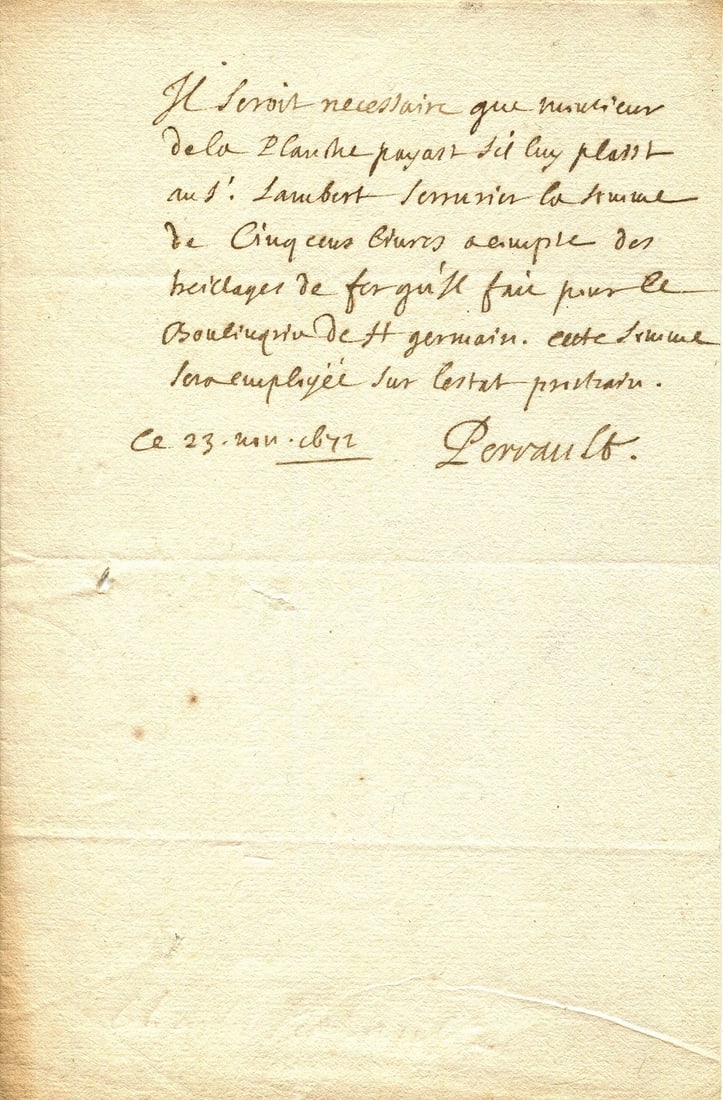 Il seroit necessaire que monsieur
de la Planche payast sil luy plaist
au Sr. Lambert serrurier la somme
de Cinq cens livres acompte des
treillages de fer qu'Il fait pour le
Boulingrin de St germain. cette somme
sera employée sur lestat prochain.
Ce 23. nov. 1672 Perrault.